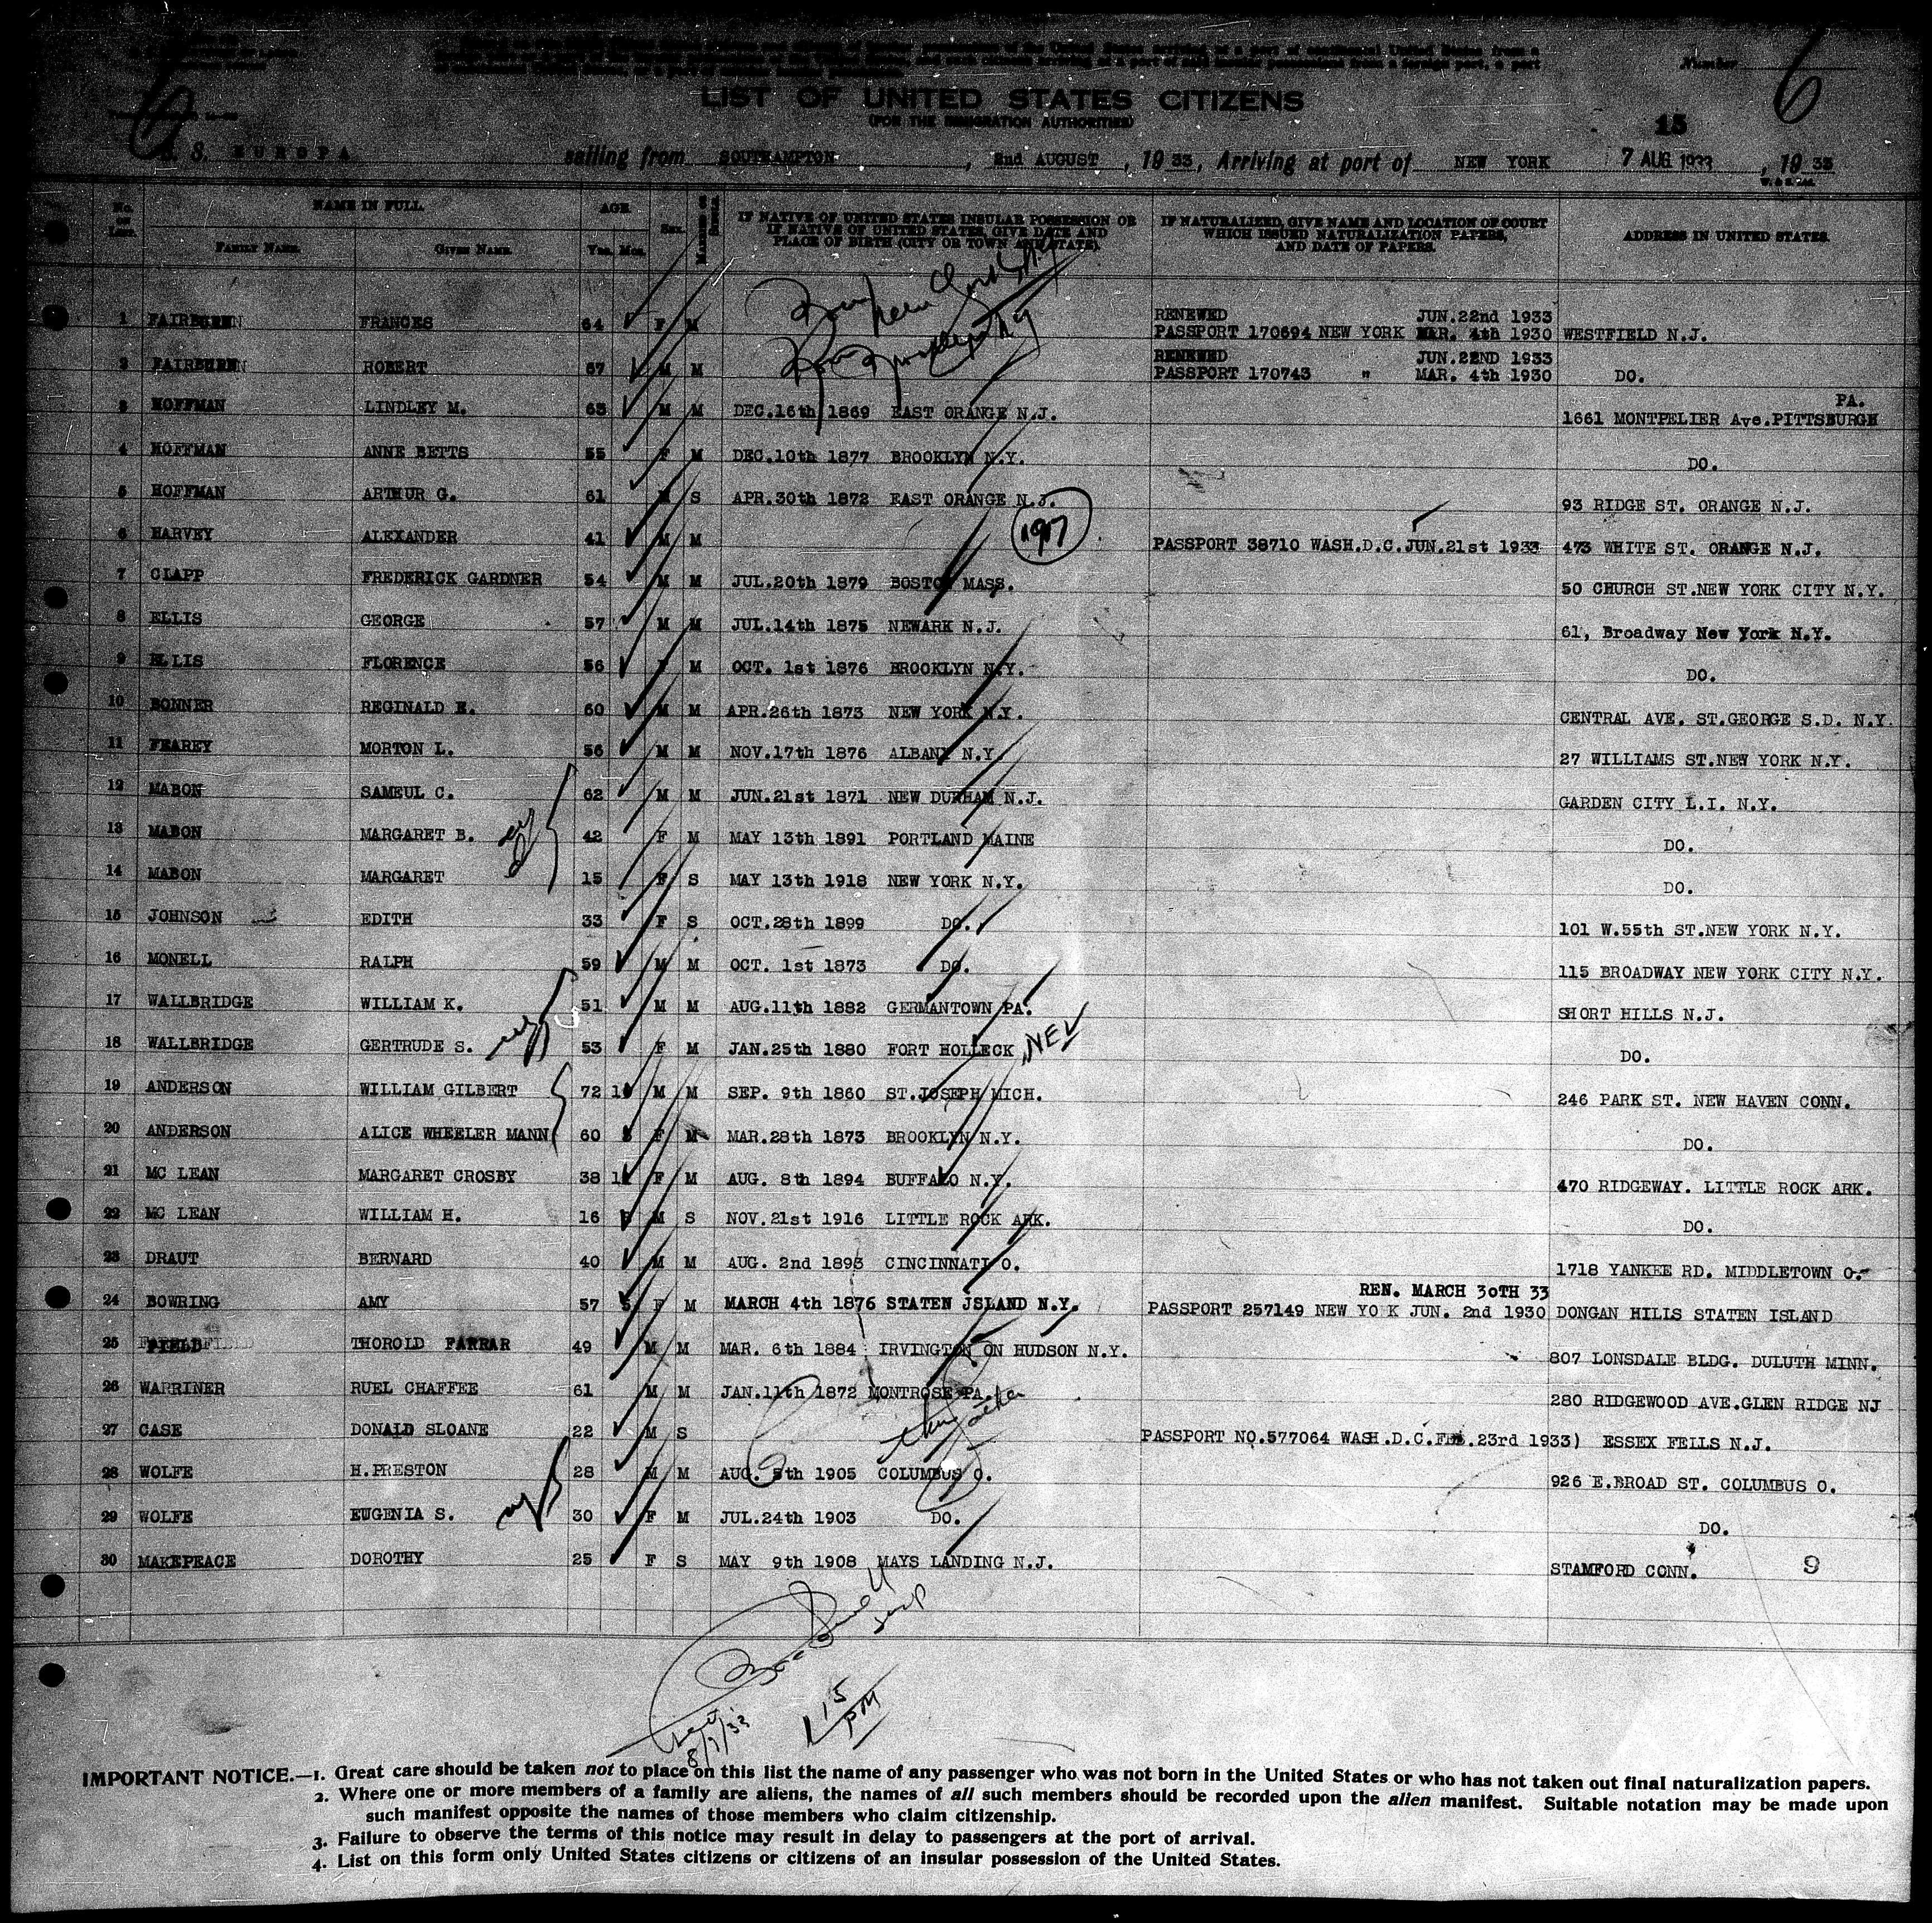 Number 6
6
LIST OF UNITED STATES CITIZENS
(FOR THE IMMIGRATION AUTHORITIES)
15
S. S. EUROPA sailing from SOUTHAMPTON, 2nd AUGUST, 19 33, Arriving at port of NEW YORK 7 AUG 1933, 19 33
No. on List. NAME IN FULL. AGE. Sex. Married or Single. IF NATIVE OF UNITED STATES INSULAR POSSESSION OR IF NATIVE OF UNITED STATES, GIVE DATE AND PLACE OF BIRTH (CITY OR TOWN AND STATE). IF NATURALIZED, GIVE NAME AND LOCATION OF COURT WHICH ISSUED NATURALIZATION PAPERS, AND DATE OF PAPERS. ADDRESS IN UNITED STATES.
FAMILY NAME. GIVEN NAME. Yrs. Mos.
RENEWED JUN.22nd 1933
1 FRANCES 64 F M PASSPORT 170694 NEW YORK MAR. 4th 1930 WESTFIELD N.J.
RENEWED JUN.22ND 1933
2 ROBERT 67 M M PASSPORT 170743 " MAR. 4th 1930 DO.
PA.
3 HOFFMAN LINDLEY M. 63 M M DEC.16th 1869 EAST ORANGE N.J. 1661 MONTPELIER Ave.PITTSBURGH
4 HOFFMAN ANNE BETTS 55 F M DEC.10th 1877 BROOKLYN N.Y. DO.
5 HOFFMAN ARTHUR G. 61 M S APR.30th 1872 EAST ORANGE N.J. 93 RIDGE ST. ORANGE N.J.
6 HARVEY ALEXANDER 41 M M 1917 PASSPORT 38710 WASH.D.C.JUN.21st 1933 473 WHITE ST. ORANGE N.J.
7 CLAPP FREDERICK GARDNER 54 M M JUL.20th 1879 BOSTON MASS. 50 CHURCH ST.NEW YORK CITY N.Y.
8 ELLIS GEORGE 57 M M JUL.14th 1875 NEWARK N.J. 61, Broadway New York N.Y.
9 ELLIS FLORENCE 56 F M OCT. 1st 1876 BROOKLYN N.Y. DO.
10 BONNER REGINALD E. 60 M M APR.26th 1873 NEW YORK N.Y. CENTRAL AVE. ST.GEORGE S.D. N.Y.
11 FEAREY MORTON L. 56 M M NOV.17th 1876 ALBANY N.Y. 27 WILLIAMS ST.NEW YORK N.Y.
12 MABON SAMEUL C. 62 M M JUN.21st 1871 NEW DURHAM N.J. GARDEN CITY L.I. N.Y.
13 MABON MARGARET B. 42 F M MAY 13th 1891 PORTLAND MAINE DO.
14 MABON MARGARET 15 F S MAY 13th 1918 NEW YORK N.Y. DO.
15 JOHNSON EDITH 33 F S OCT.28th 1899 DO. 101 W.55th ST.NEW YORK N.Y.
16 MONELL RALPH 59 M M OCT. 1st 1873 DO. 115 BROADWAY NEW YORK CITY N.Y.
17 WALLBRIDGE WILLIAM K. 51 M M AUG.11th 1882 GERMANTOWN PA. SHORT HILLS N.J.
18 WALLBRIDGE GERTRUDE S. 53 F M JAN.25th 1880 FORT HOLLECK NEV DO.
19 ANDERSON WILLIAM GILBERT 72 10 M M SEP. 9th 1860 ST.JOSEPH MICH. 246 PARK ST. NEW HAVEN CONN.
20 ANDERSON ALICE WHEELER MANN 60 F M MAR.28th 1873 BROOKLYN N.Y. DO.
21 MC LEAN MARGARET CROSBY 38 11 F M AUG. 8th 1894 BUFFALO N.Y. 470 RIDGEWAY. LITTLE ROCK ARK.
22 MC LEAN WILLIAM H. 16 M S NOV.21st 1916 LITTLE ROCK ARK. DO.
23 DRAUT BERNARD 40 M M AUG. 2nd 1893 CINCINNATI O. 1718 YANKEE RD. MIDDLETOWN O.
REN. MARCH 30TH 33
24 BOWRING AMY 57 5 F M MARCH 4th 1876 STATEN JSLAND N.Y. PASSPORT 257149 NEW YO K JUN. 2nd 1930 DONGAN HILLS STATEN ISLAND
25 FIELD THOROLD FARRAR 49 M M MAR. 6th 1884 IRVINGTON ON HUDSON N.Y. 807 LONSDALE BLDG. DULUTH MINN.
26 WARRINER RUEL CHAFFEE 61 M M JAN.11th 1872 MONTROSE PA. 280 RIDGEWOOD AVE.GLEN RIDGE NJ
27 CASE DONALD SLOANE 22 M S PASSPORT NO.577064 WASH.D.C.FEB.23rd 1933) ESSEX FELLS N.J.
28 WOLFE H.PRESTON 28 M M AUG. 5th 1905 COLUMBUS O. 926 E.BROAD ST. COLUMBUS O.
29 WOLFE EUGENIA S. 30 F M JUL.24th 1903 DO. DO.
30 MAKEPEACE DOROTHY 25 F S MAY 9th 1908 MAYS LANDING N.J. STAMFORD CONN. 9
8/7/33
1 15 PM
IMPORTANT NOTICE.—1. Great care should be taken not to place on this list the name of any passenger who was not born in the United States or who has not taken out final naturalization papers.
2. Where one or more members of a family are aliens, the names of all such members should be recorded upon the alien manifest. Suitable notation may be made upon
such manifest opposite the names of those members who claim citizenship.
3. Failure to observe the terms of this notice may result in delay to passengers at the port of arrival.
4. List on this form only United States citizens or citizens of an insular possession of the United States.